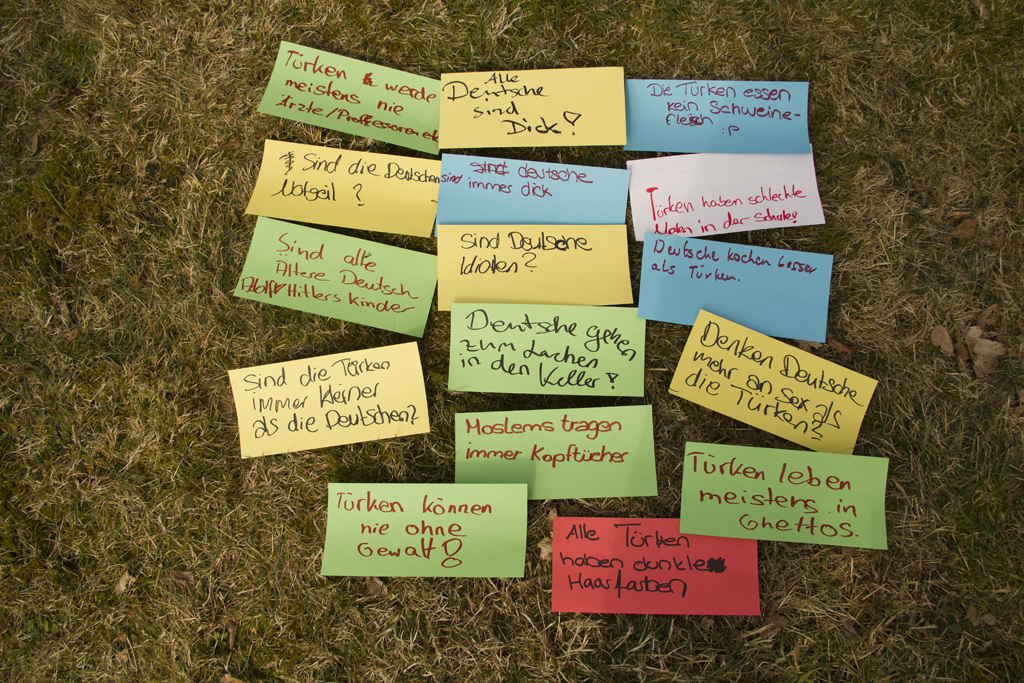 Türken werde
meistens nie
Ärzte/Professoren etc
Alle
Deutsche
sind
Dick!
Die Türken essen
kein Schweine-
fleisch :P
Sind die Deutschen
Notgeil?
sind deutsche
immer dick
Türken haben schlechte
Noten in der Schule!
Sind alle
Ältere Deutsch
Adolf Hitlers Kinder
Sind Deutsche
Idioten?
Deutsche kochen besser
als Türken.
Deutsche gehen
zum Lachen
in den Keller?
Denken Deutsche
mehr an sex als
die Türken?
Sind die Türken
immer kleiner
als die Deutschen?
Moslems tragen
immer Kopftücher
Türken leben
meistens in
Ghettos.
Türken können
nie ohne
Gewalt!
Alle Türken
haben dunkle
Haarfarben